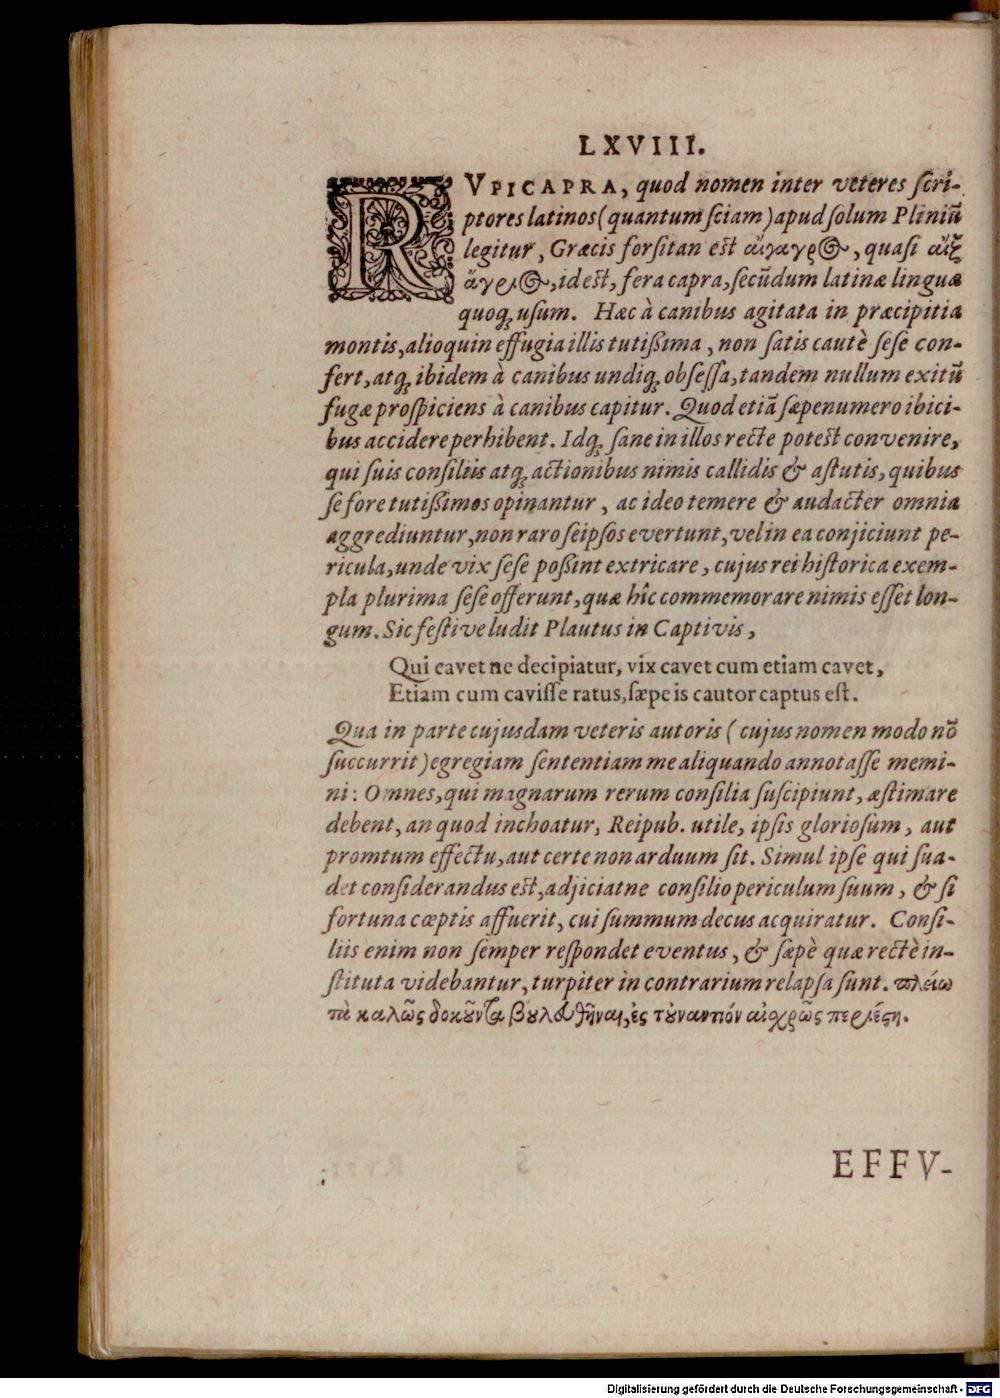 LXVIII.
RVPICAPRA, quod nomen inter veteres scri-
ptores latinos (quantum sciam) apud solum Pliniũ
legitur, Græcis forsitan est αἴγαγρος, quasi αἴξ
ἄγριος, id est, fera capra, secũdum latinæ linguæ
quoq; usum. Hæc à canibus agitata in præcipitia
montis, alioquin effugia illis tutißima, non satis cautè sese con-
fert, atq; ibidem à canibus undiq; obsessa, tandem nullum exitũ
fugæ prospiciens à canibus capitur. Quod etiã sæpenumero ibici-
bus accidere perhibent. Idq; sane in illos recte potest convenire,
qui suis consiliis atq; actionibus nimis callidis & astutis, quibus
se fore tutißimos opinantur, ac ideo temere & audacter omnia
aggrediuntur, non raro seipsos evertunt, vel in ea conjiciunt pe-
ricula, unde vix sese poßint extricare, cujus rei historica exem-
pla plurima sese offerunt, quæ hîc commemorare nimis esset lon-
gum. Sic festive ludit Plautus in Captivis,
Qui cavet ne decipiatur, vix cavet cum etiam cavet,
Etiam cum cavisse ratus, sæpe is cautor captus est.
Qua in parte cujusdam veteris autoris (cujus nomen modo nõ
succurrit) egregiam sententiam me aliquando annotasse memi-
ni: Omnes, qui magnarum rerum consilia suscipiunt, æstimare
debent, an quod inchoatur, Reipub. utile, ipsis gloriosum, aut
promtum effectu, aut certe non arduum sit. Simul ipse qui sua-
det considerandus est, adjiciatne consilio periculum suum, & si
fortuna cœptis affuerit, cui summum decus acquiratur. Consi-
liis enim non semper respondet eventus, & sæpè quæ rectè in-
stituta videbantur, turpiter in contrarium relapsa sunt. πλείω
τὰ καλῶς δοκοῦντα βουλευθῆναι, ἐς τοὐναντίον αἰσχρῶς περιέστη.
EFFV-
Digitalisierung gefördert durch die Deutsche Forschungsgemeinschaft - DFG